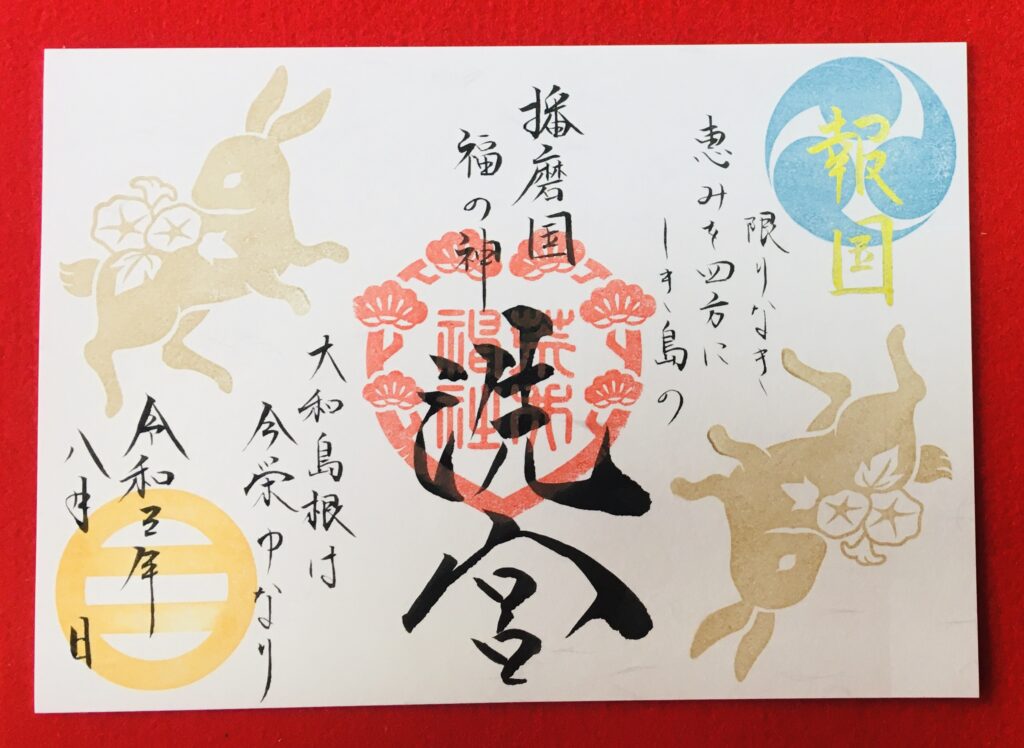 報国
限りなき
恵みを四方に
しき島の
播磨国
福の神
洗宮
大和島根は
今栄ゆなり
令和三年
八月 日